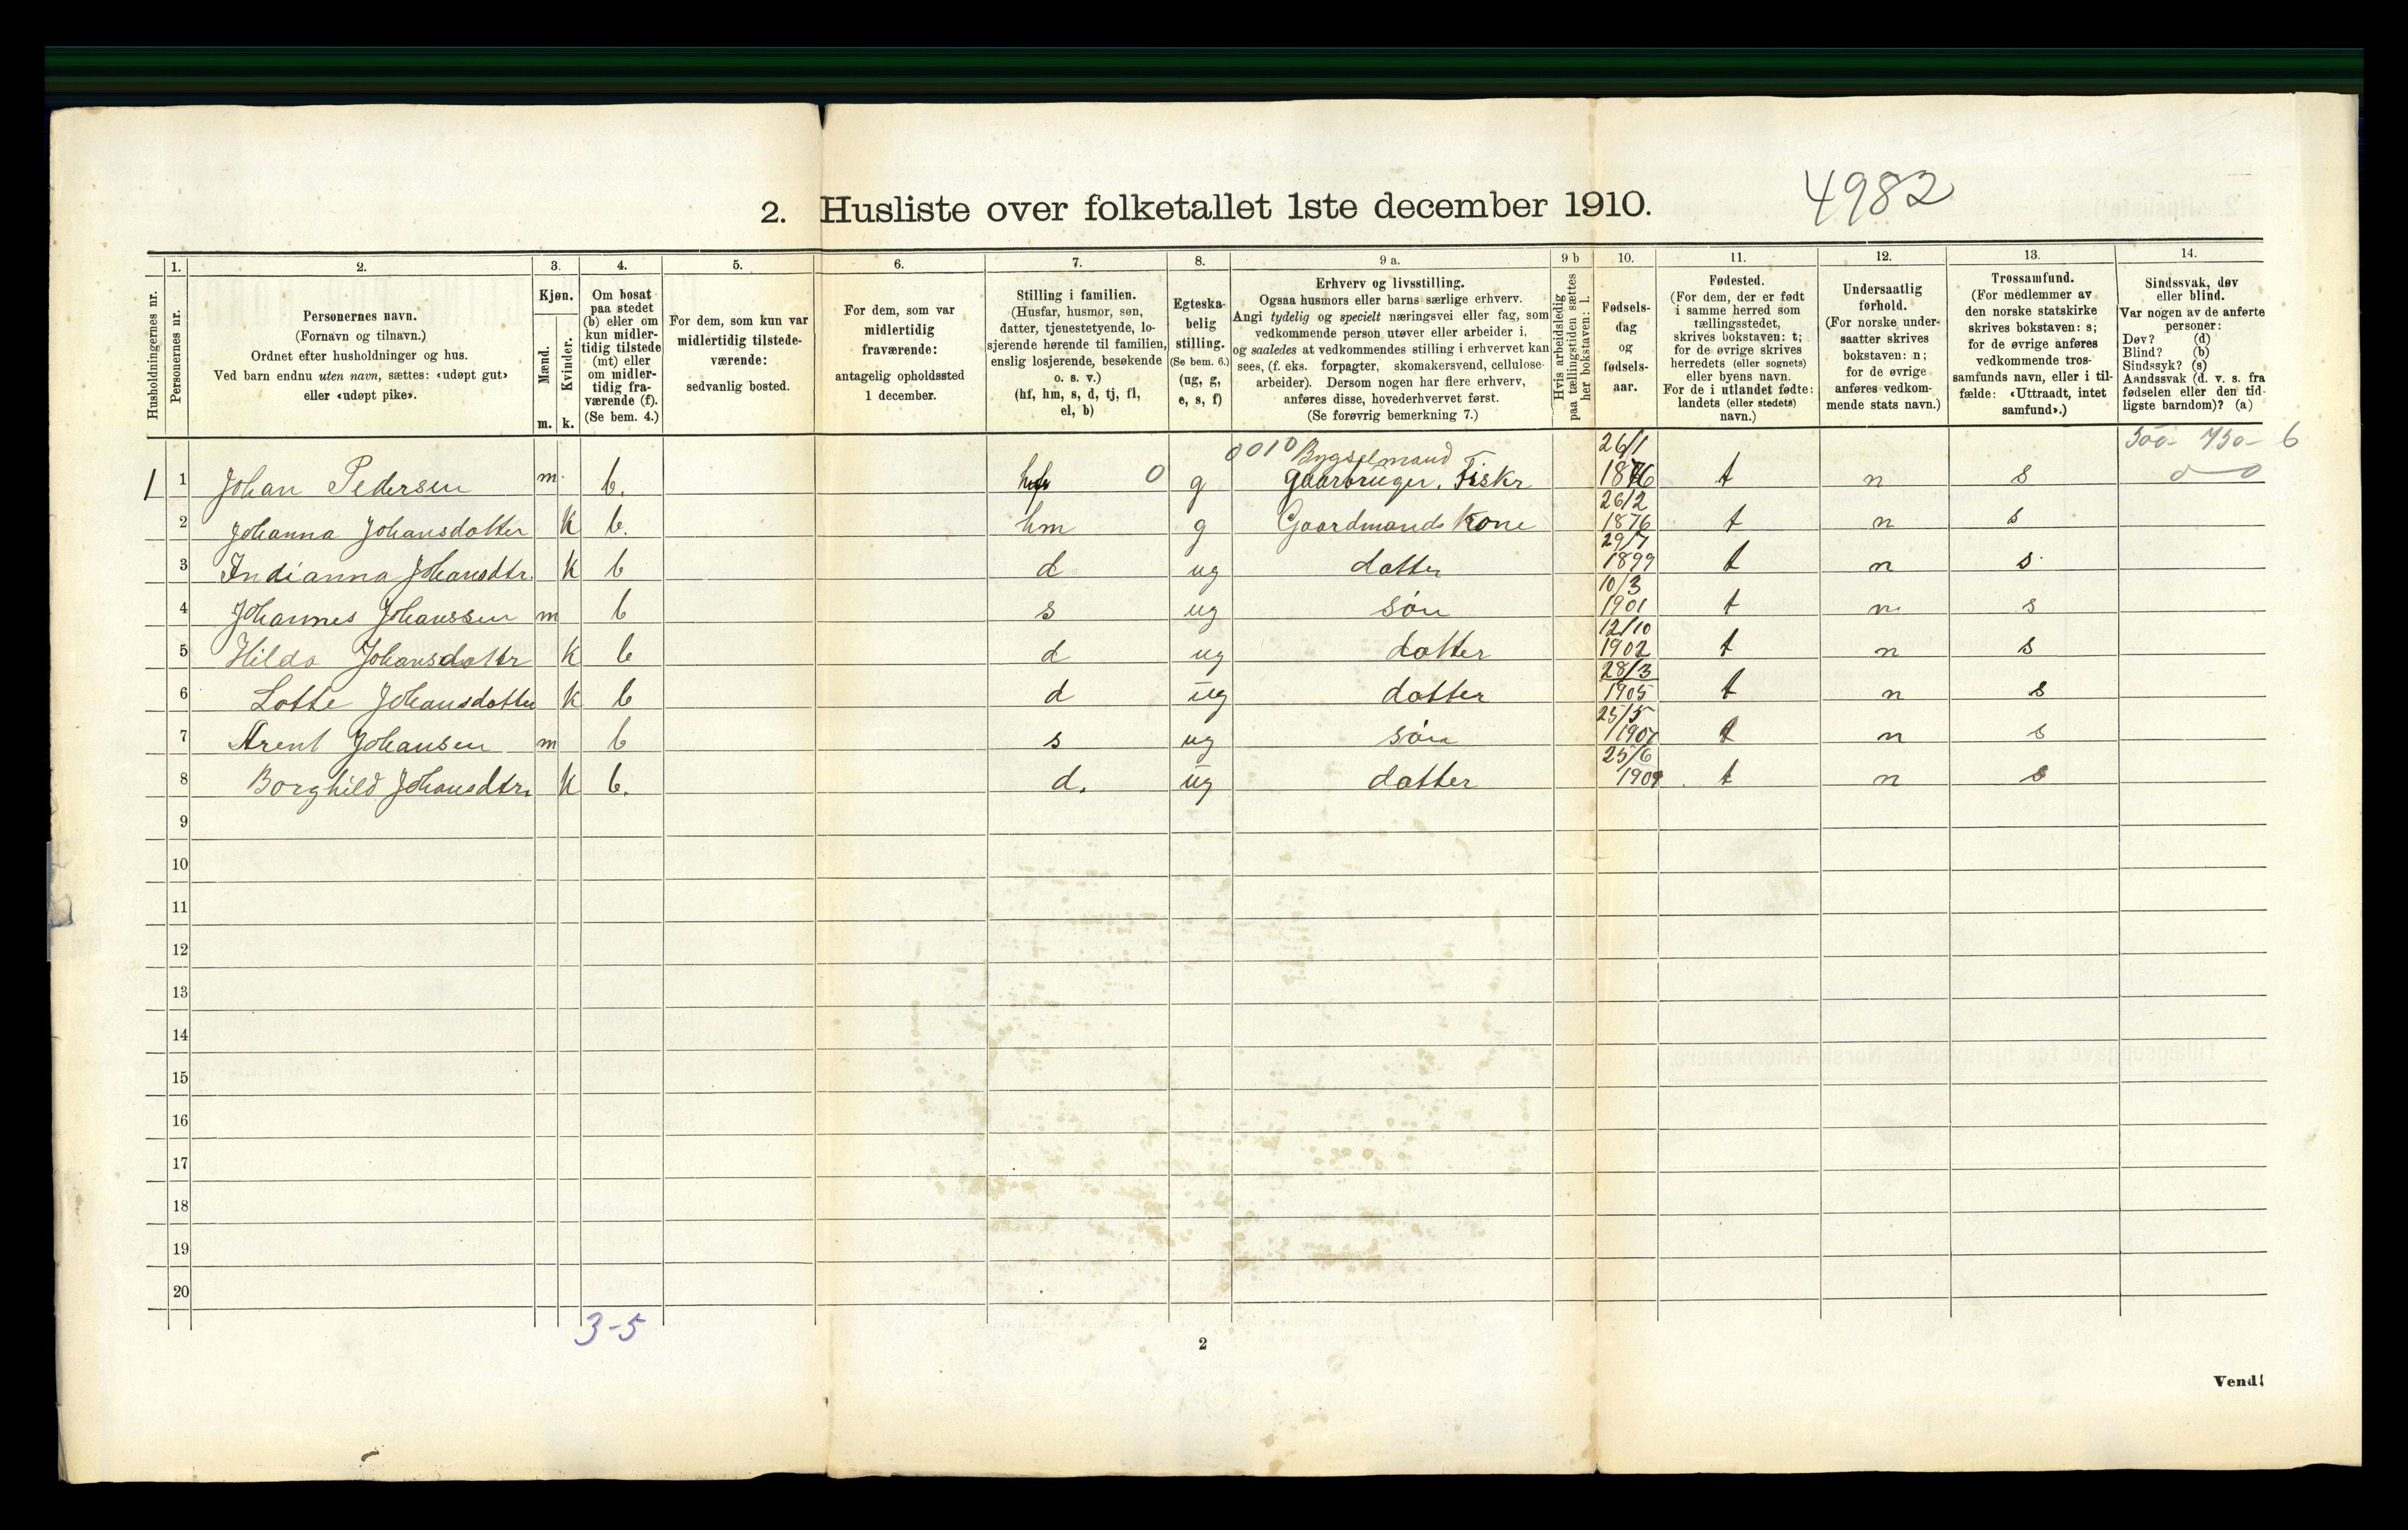 2. Husliste over folketallet 1ste december 1910.
4982
Husholdningernes nr.
1.
Personernes nr.
2.
Personernes navn.
(Fornavn og tilnavn.)
Ordnet efter husholdninger og hus.
Ved barn endnu uten navn, sættes: «udøpt gut»
eller «udøpt pike».
3.
Kjøn.
Mænd.
Kvinder.
m. k.
4.
Om bosat
paa stedet
(b) eller om
kun midler-
tidig tilstede
(mt) eller
om midler-
tidig fra-
værende (f).
(Se bem. 4.)
5.
For dem, som kun var
midlertidig tilstede-
værende:
sedvanlig bosted.
6.
For dem, som var
midlertidig
fraværende:
antagelig opholdssted
1 december.
7.
Stilling i familien.
(Husfar, husmor, søn,
datter, tjenestetyende, lo-
sjerende hørende til familien,
enslig losjerende, besøkende
o. s. v.)
(hf, hm, s, d, tj, fl,
el, b)
8.
Egteska-
belig
stilling.
(Se bem. 6.)
(ug, g,
e, s, f)
9 a.
Erhverv og livsstilling.
Ogsaa husmors eller barns særlige erhverv.
Angi tydelig og specielt næringsvei eller fag, som
vedkommende person utøver eller arbeider i,
og saaledes at vedkommendes stilling i erhvervet kan
sees, (f. eks. forpagter, skomakersvend, cellulose-
arbeider). Dersom nogen har flere erhverv,
anføres disse, hovederhvervet først.
(Se forøvrig bemerkning 7.)
9 b
Hvis arbeidsledig
paa tællingstiden sættes
her bokstaven: l.
10.
Fødsels-
dag
og
fødsels-
aar.
11.
Fødested.
(For dem, der er født
i samme herred som
tællingsstedet,
skrives bokstaven: t;
for de øvrige skrives
herredets (eller sognets)
eller byens navn.
For de i utlandet fødte:
landets (eller stedets)
navn.)
12.
Undersaatlig
forhold.
(For norske under-
saatter skrives
bokstaven: n;
for de øvrige
anføres vedkom-
mende stats navn.)
13.
Trossamfund.
(For medlemmer av
den norske statskirke
skrives bokstaven: s;
for de øvrige anføres
vedkommende tros-
samfunds navn, eller i til-
fælde: «Uttraadt, intet
samfund».)
14.
Sindssvak, døv
eller blind.
Var nogen av de anførte
personer:
Døv? (d)
Blind? (b)
Sindssyk? (s)
Aandssvak (d. v. s. fra
fødselen eller den tid-
ligste barndom)? (a)
0010 Bygselmand 26/1 500- 750- 6
1 1 Johan Pedersen m. b. hf 0 g gaarbruger. Fiskr 1876 t n s 0 0
2 Johanna Johansdatter k b. hm g Gaardmands Kone 26/2 1876 t n s
3 Indianna Johansdtr. k b d ug datter 29/7 1899 t n s
4 Johannes Johanssen m b s ug søn 10/3 1901 t n. s
5 Hilda Johansdattr k b d ug datter 12/10 1902 t n s
6 Lotte Johansdatter k b d ug datter 28/3 1905 t n s
7 Arent Johansen m b s ug søn 25/5 1907 t n s
8 Borghild Johansdtr. k b. d. ug datter 25/6 1909 t n s
9
10
11
12
13
14
15
16
17
18
19
20
3-5
2
Vend!